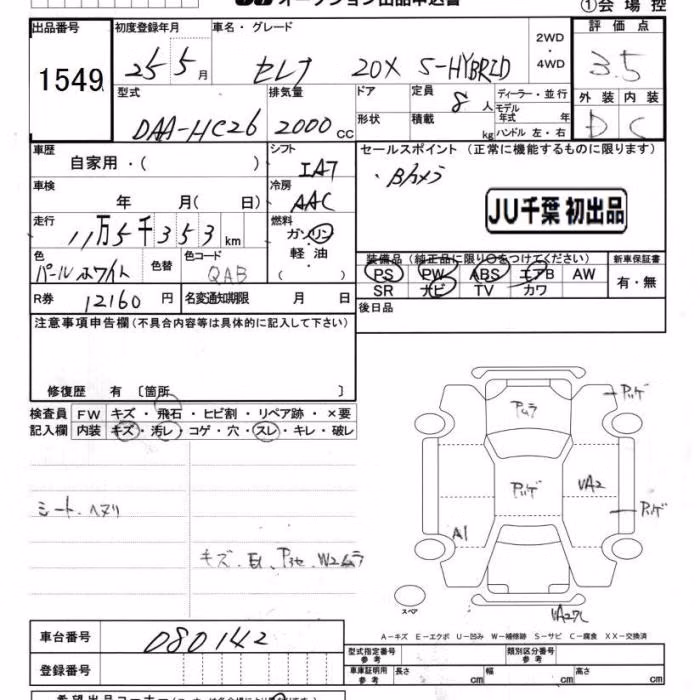 オークション出品申込書
①会場控
出品番号 初度登録年月 車名・グレード 2WD・4WD 評価点
1549 25 5月 セレナ 20X S-HYBRID 3.5
型式 排気量 ドア 定員 8人 ディーラー・並行 外装 内装
DAA-HC26 2000cc 形状 積載 kg モデル年式 年 ハンドル 左・右 D C
車歴 自家用・( ) シフト IA7 セールスポイント (正常に機能するものに限ります)
車検 年 月( 日) 冷房 AAC ・Bカメラ
JU千葉 初出品
走行 11万5千353km 燃料 ガソリン 軽油 ( )
色 パールホワイト 色替 色コード QAB
装備品 (純正品に限り○をつけてください) 新車保証書
PS PW ABS エアB AW 有・無
SR ナビ TV カワ
R券 12160円 名変通知期限 月 日 後日品
注意事項申告欄(不具合内容等は具体的に記入して下さい)
修復歴 有 〔箇所 〕
検査員 FW キズ・飛石・ヒビ割・リペア跡・×要
記入欄 内装 キズ・汚レ・コゲ・穴・スレ・キレ・破レ
シート.ヘタリ
キズ.E1. W2ムラ
Pムラ
Pハゲ
Pハゲ
UA2
Pハゲ
A1
スペア
A-キズ E-エクボ U-凹み W-補修跡 S-サビ C-腐食 XX-交換済
車台番号 080142
型式指定番号 参考 類別区分番号 参考
登録番号 車庫証明用 参考 長さ cm 幅 cm 高さ cm
希望出品コーナー